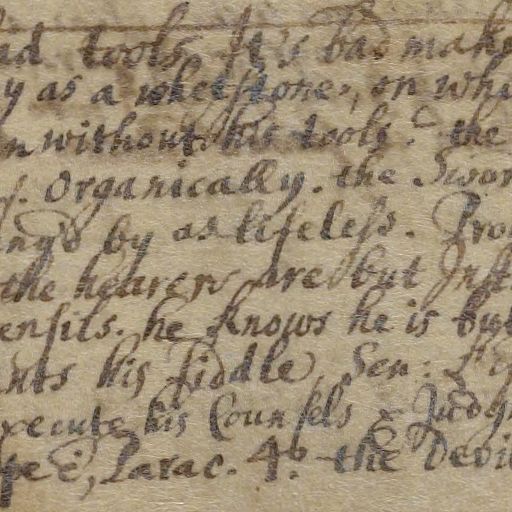 ad tools. It's bad make
y as a whetstone, on whi
n without his tools. the
s. Organically. the Swor
ings by as lifeless. Pro
the hearers are but Inst
ensils. he knows he is but
nts his fiddle, Sen:
xecute his Counsels & Judgm
pe i, Parac. 4o. the Devil